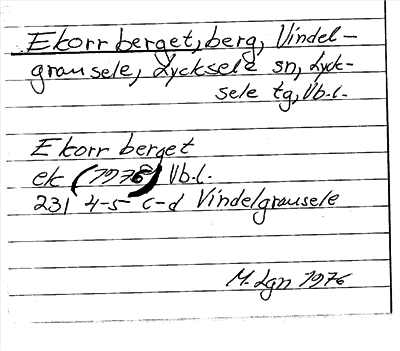 Ekorrberget, berg, Vindel-
gransele, Lycksele sn, Lyck-
sele tg, Vb.l.
Ekorrberget
ek (1976) Vb.l.
231 4-5 c-d Vindelgransele
M. Lgn 1976